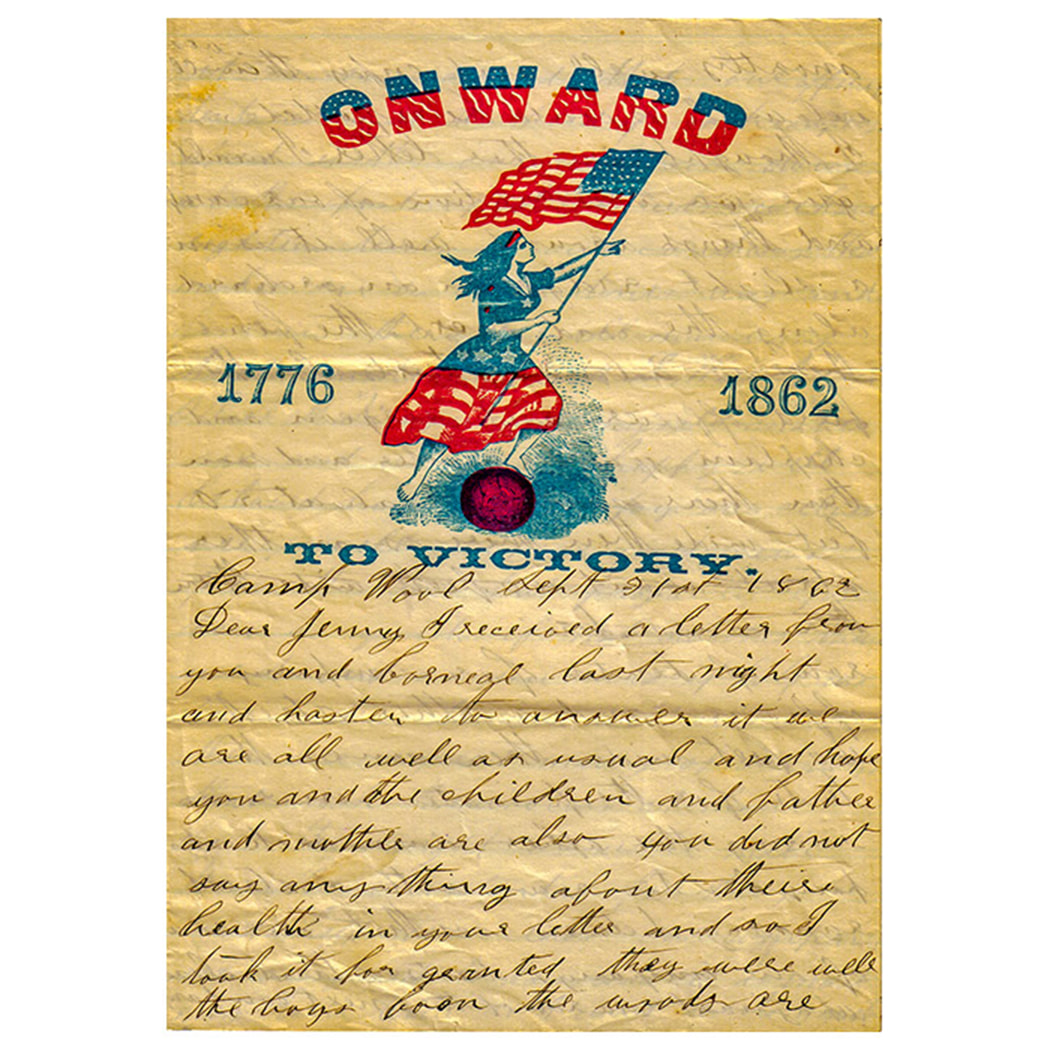 ONWARD
1776
1862
TO VICTORY.
Camp Wool Sept 21st 1862
Dear Jenny I received a letter from
you and last night
and hasten to answer it we
are all well as usual and hope
you and the children and father
and mother are also you did not
say any thing about their
health in your letter and so I
took it for granted they were well
the boys the woods are